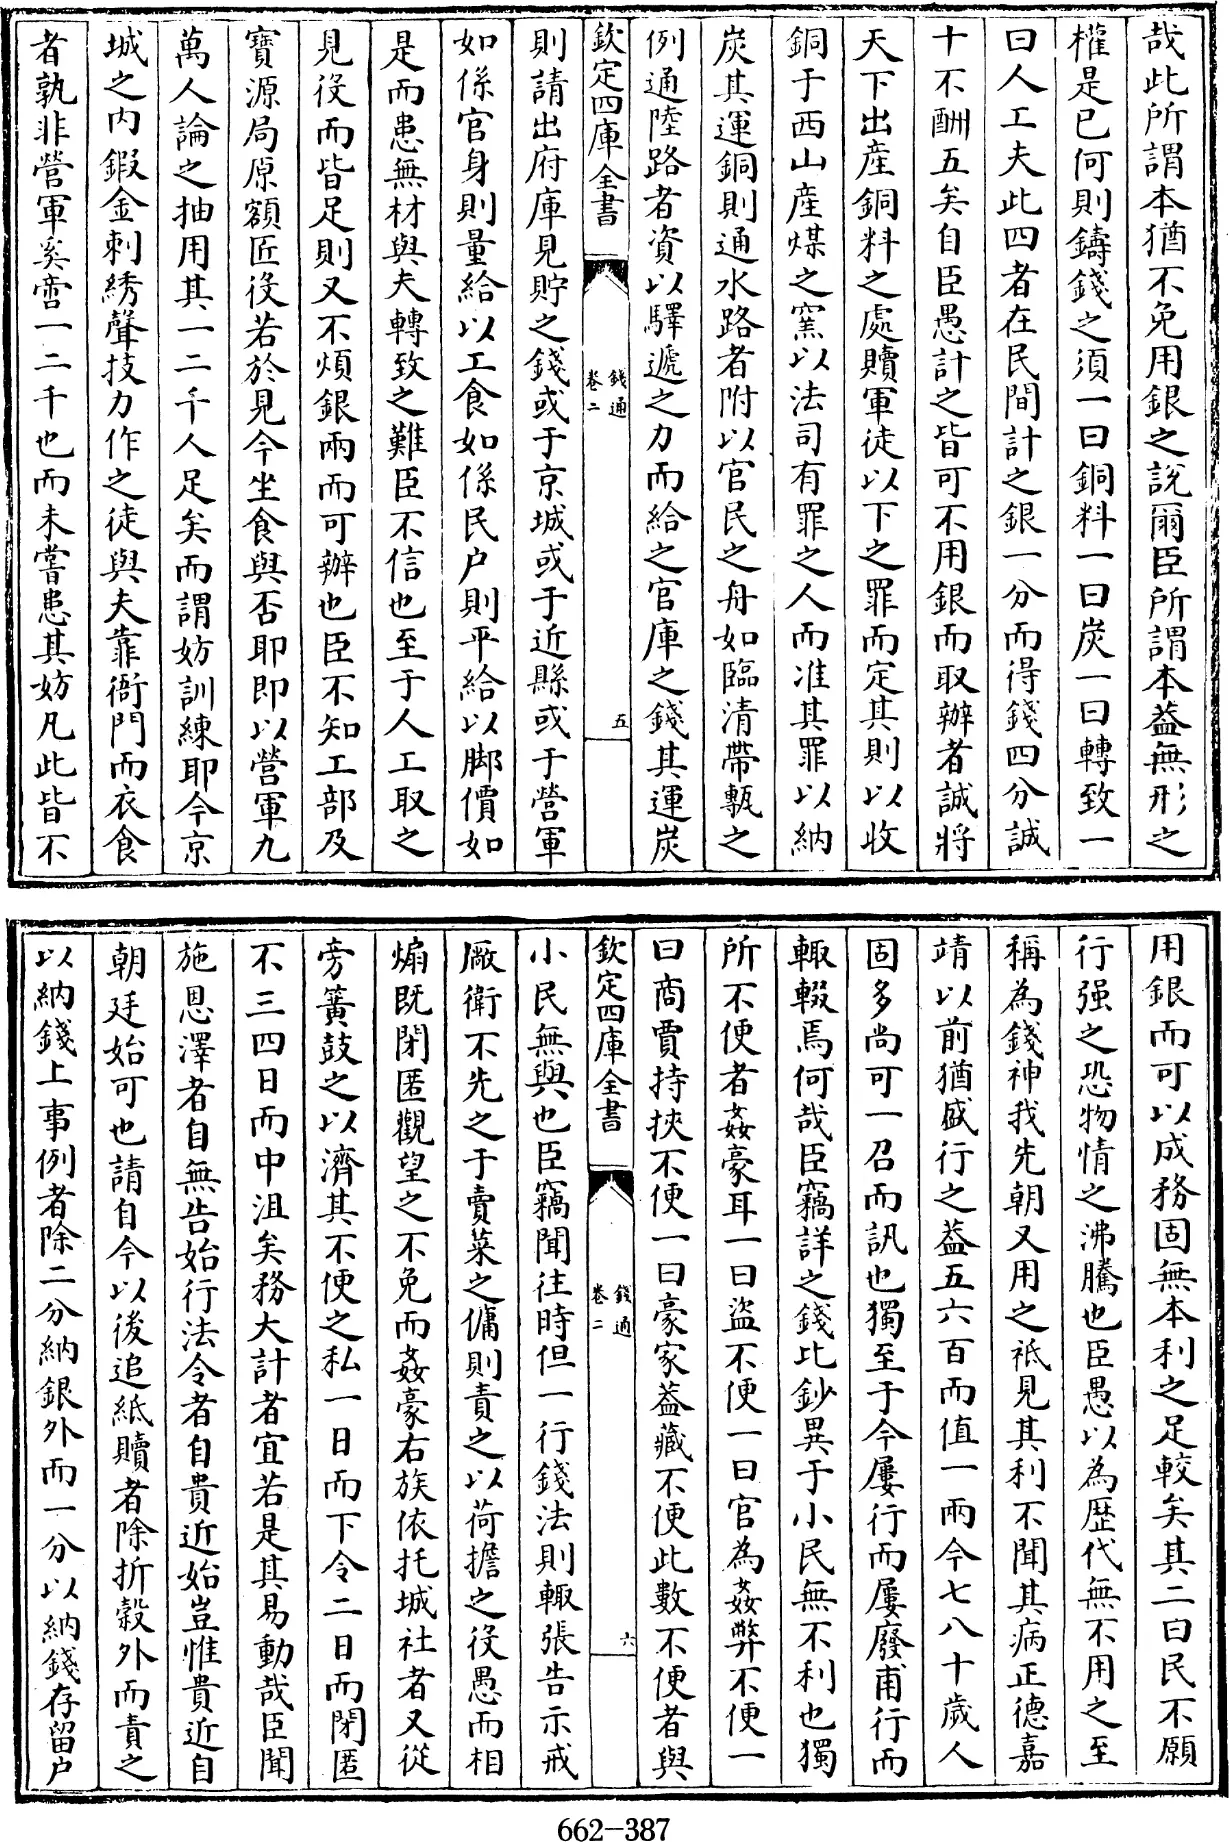 哉此所謂本猶不免用銀之說爾臣所謂本葢無形之
權是已何則鑄錢之須一曰銅料一曰炭一曰轉致一
曰人工夫此四者在民間計之銀一分而得錢四分誠
十不酬五矣自臣愚計之皆可不用銀而取辦者誠將
天下出産銅料之處贖軍徒以下之罪而定其則以收
銅于西山産煤之窰以法司有罪之人而准其罪以納
炭其運銅則通水路者附以官民之舟如臨清帶甎之
例通陸路者資以驛遞之力而給之官庫之錢其運炭
欽定四庫全書
錢通
卷二
五
則請出府庫見貯之錢或于京城或于近縣或于營軍
如係官身則量給以工食如係民户則平給以脚價如
是而患無材與夫轉致之難臣不信也至于人工取之
見役而皆足則又不煩銀兩而可辦也臣不知工部及
寶源局原額匠役若於見今坐食與否耶即以營軍九
萬人論之抽用其一二千人足矣而謂妨訓練耶今京
城之内鍜金刺綉聲技力作之徒與夫靠衙門而衣食
者孰非營軍奚啻一二千也而未嘗患其妨凡此皆不
用銀而可以成務固無本利之足較矣其二曰民不願
行强之恐物情之沸騰也臣愚以為歴代無不用之至
稱為錢神我先朝又用之祗見其利不聞其病正德嘉
靖以前猶盛行之葢五六百而值一兩今七八十歲人
固多尚可一召而訊也獨至于今屢行而屢廢甫行而
輙輟焉何哉臣竊詳之錢比鈔異于小民無不利也獨
所不便者姦豪耳一曰盜不便一曰官為姦弊不便一
曰商賈持挾不便一曰豪家葢藏不便此數不便者與
欽定四庫全書
錢通
卷二
六
小民無與也臣竊聞往時但一行錢法則輙張告示戒
厰衛不先之于賣菜之傭則責之以荷擔之役愚而相
煽既閉匿觀望之不免而姦豪右族依托城社者又從
旁簧鼓之以濟其不便之私一日而下令二日而閉匿
不三四日而中沮矣務大計者宜若是其易動哉臣聞
施恩澤者自無告始行法令者自貴近始豈惟貴近自
朝廷始可也請自今以後追紙贖者除折穀外而責之
以納錢上事例者除二分納銀外而一分以納錢存留户
662-387